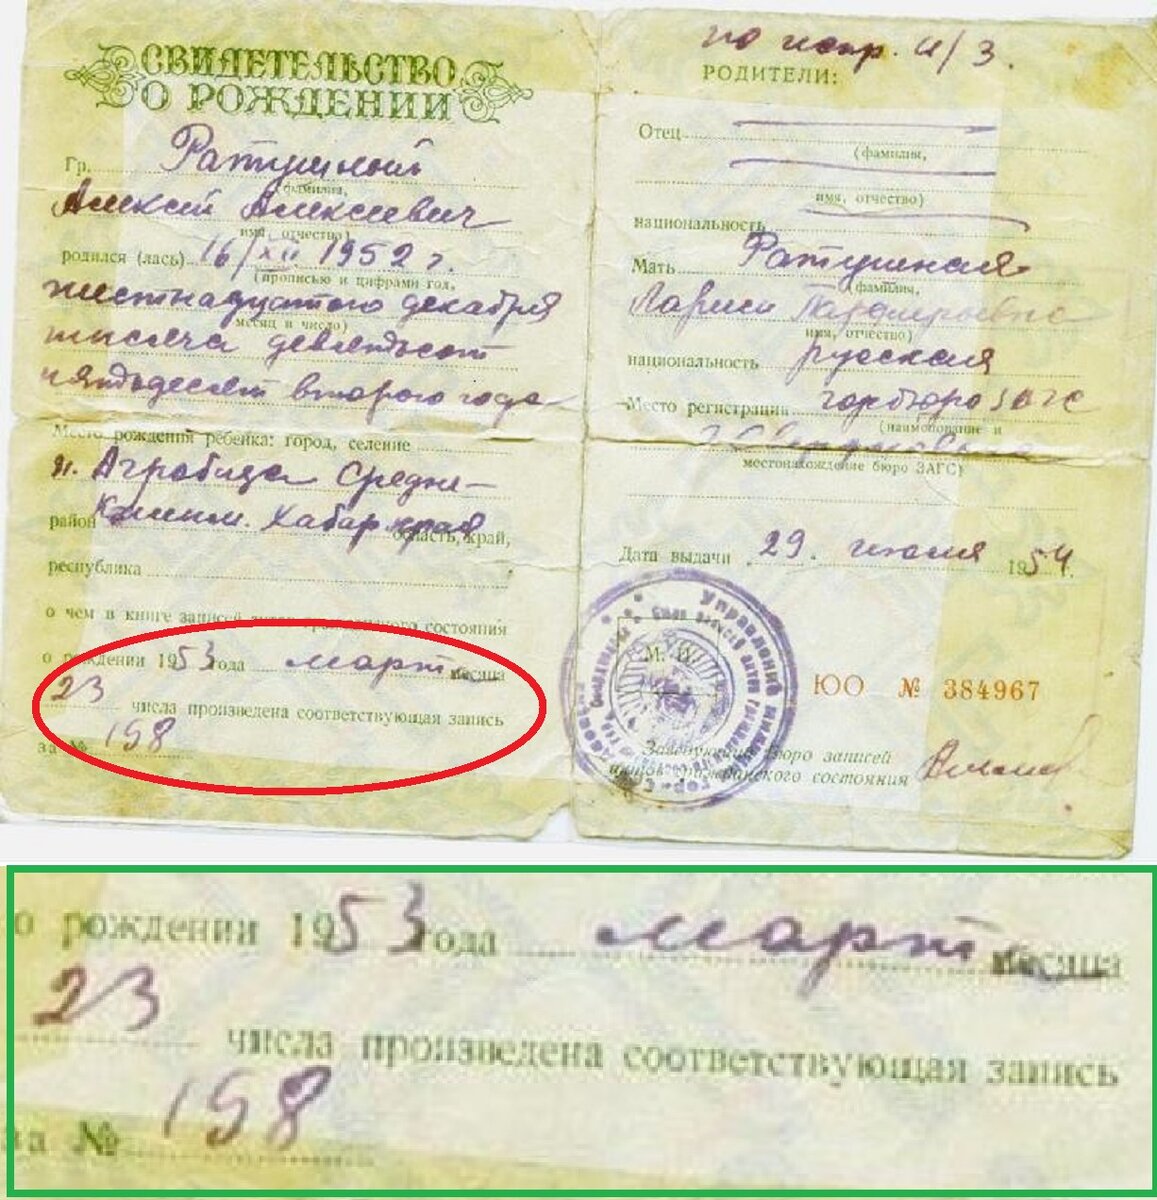 СВИДЕТЕЛЬСТВО
О РОЖДЕНИИ
Гр. Ратушный
(фамилия,
Алексей Алексеевич
имя, отчество)
родился (лась) 16/XII 1952 г.
(прописью и цифрами год,
шестнадцатого декабря
месяц и число)
тысяча девятьсот
пятьдесят второго года
Место рождения ребенка: город, селение
п. Агробаза Средне-
район Хабар. края
область, край,
республика
о чем в книге записей актов гражданского состояния
о рождении 1953 года март месяца
23 числа произведена соответствующая запись
за № 198
по испр. а/з.
РОДИТЕЛИ:
Отец
(фамилия,
имя, отчество)
национальность
Мать Ратушная
(фамилия,
Лариса
имя, отчество)
национальность русская
Место регистрации горбюро ЗАГС
(наименование и
местонахождение бюро ЗАГС)
Дата выдачи 29. июня 1954 г.
Управление
М. П.
ЮО № 384967
Заведующий бюро записей
актов гражданского состояния
о рождении 1953 года март месяца
23
числа произведена соответствующая запись
за № 198